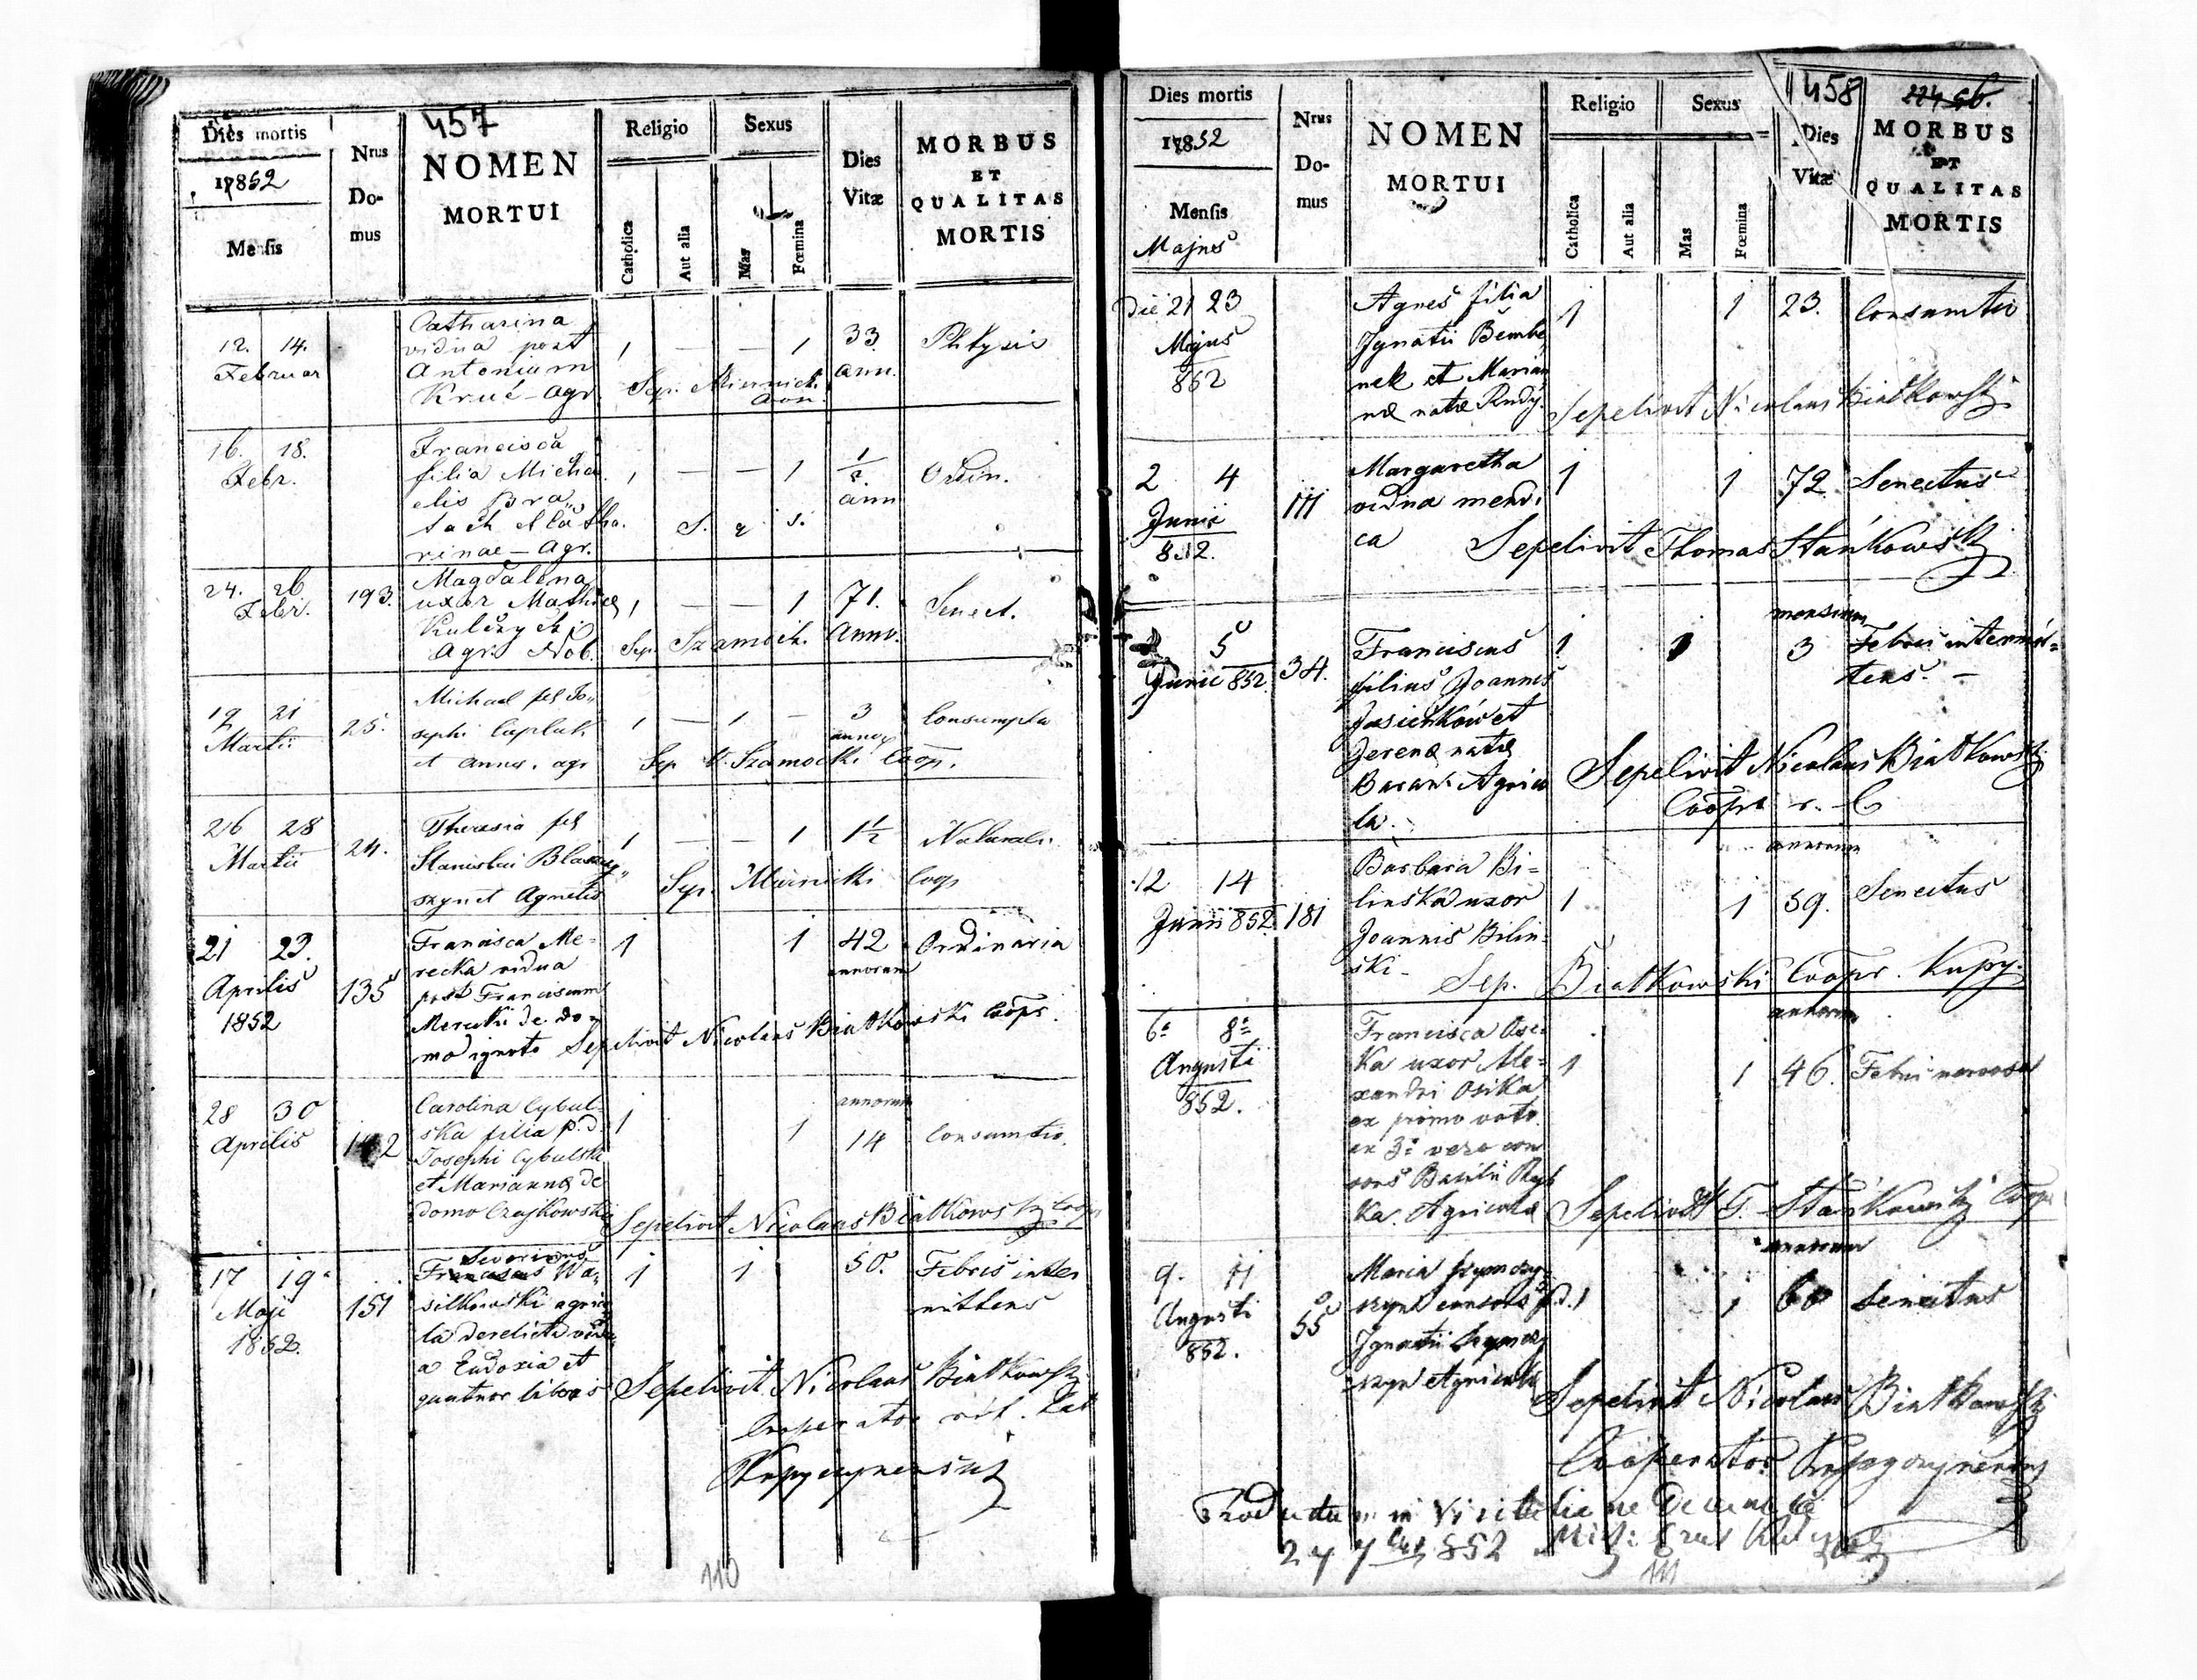 457
Dies mortis
17852
Mensis
Nrus
Do-
mus
NOMEN
MORTUI
Religio
Catholica
Aut alia
Sexus
Mas
Fœmina
Dies
Vitæ
MORBUS
ET
QUALITAS
MORTIS
12. 14.
Februar
Catharina
vidua post
Antonium
Kruć - Agr.
1 — — 1
33
ann.
Phtysis
16. 18.
Febr.
Francisca
filia Micha
elis Bra
tach et Catha.
rinae - Agr.
1 — — 1
1/2
ann
Ordin.
24. 26
Febr.
193.
Magdalena
uxor Mathiæ
Kulczycki
Agr. Nob.
1 — — 1
71.
Anno.
Senect.
Sep. Szamock.
19 21
Martii
25.
Michael fil Jo"
sephi
et Anna. agr
1 — 1 —
3
annor
Consumpta
Sep V. Szamocki Coop.
26 28
Martii
24.
Theresia fil
Stanislai
et Agnetis
1 — — 1
1½
Naturalis
Sep. Coop
21 23.
Aprilis
1852
135
Francisca Me=
recka vidua
post Franciscum
Merecki de do=
mo ignoto
1 1
42
annorum
Ordinaria
Sepelivit Nicolaus Białkowski Coopr.
28 30
Aprilis
Carolina Cybul=
ska filia p.d.
Josephi Cybulski
et Mariannæ de
domo Czajkowski
1 1
annorum
14
Consumtio.
Sepelivit Nicolaus Białkowski Coopr
17 19
Maji
1852.
151
Severinus
Franciscus Wa=
silkowski agrico
la derelicta vidu
a Eudoxia et
quatuor liberis
1 1
50.
Febris inter
mittens
Sepelivit Nicolaus Białkowski
Cooperator rit. Lat
Kopyczynensis
110
458
Dies mortis
17852
Mensis
Majus
Nrus
Do-
mus
NOMEN
MORTUI
Religio
Catholica
Aut alia
Sexus
Mas
Fœmina
Dies
Vitæ
MORBUS
ET
QUALITAS
MORTIS
Die 21 23
Majus
852
Agnes filia
Ignatii Bembe
nek et Marian
næ natæ Rudy.
1 1
23.
Consumtio
Sepelivit Nicolaus Białkowski
2 4
Junii
852.
111
Margaretha
vidua mendi
ca
1 1
72
Senectus
Sepelivit Thomas Stańkowski
5
Junii 852.
34.
Franciscus
filius Joannes
Jasieńków et
Jerenæ natæ
Agrico
la.
1 1
mensium
3
Febris intermit=
tens. -
Sepelivit Nicolaus Białkowski
Coopr r. l
12 14
Junii 852.
181
Barbara Bi=
linska uxor
Joannis Bilin=
ski -
1 1
annorum
59.
Senectus
Sep. Białkowski Coopr. Kopy.
6a 8a
Augusti
852.
Francisca Osi=
ka uxor Ale=
xandri Osika
ex primo voto
ex 3o vero con
sors Basilii
ka. Agricola
1 1
annorum
46.
Febris nervosa
Sepelivit T. Stańkowski Coopr
9. 11
Augusti
852.
55
Maria
consors p.d.
Ignatii
Agricola
1 1
annorum
60
Senectus
Sepelivit Nicolaus Białkowski
Cooperator Kopyczynensis
Productum in Visitatione Decanali
852
111